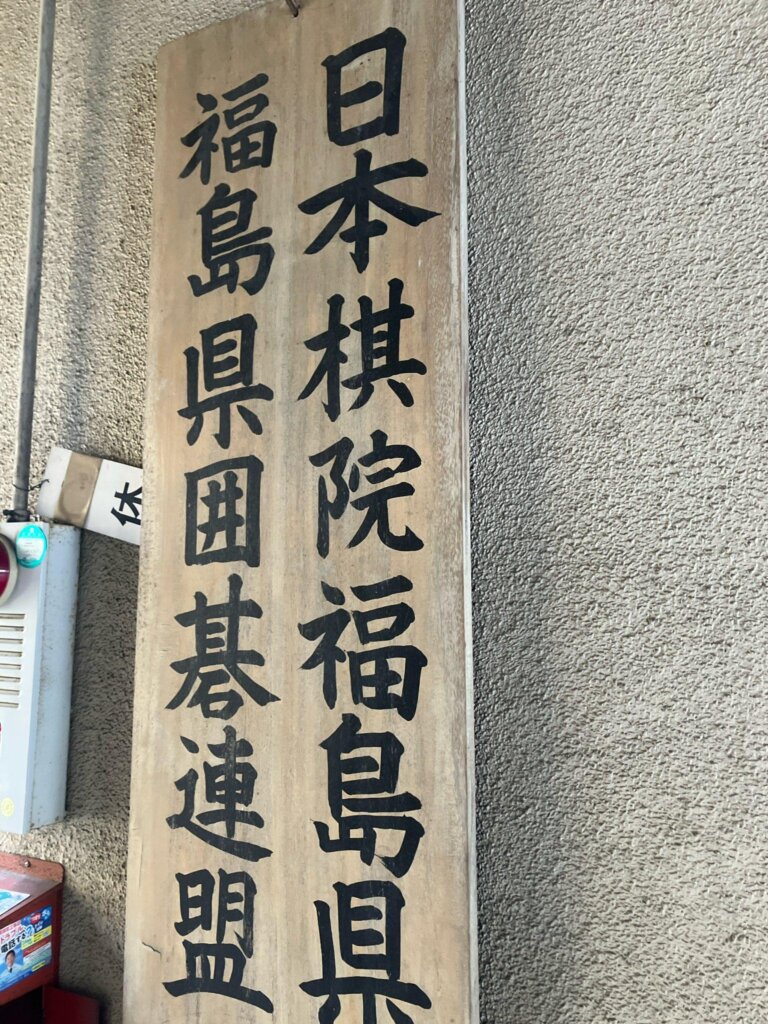 日本棋院福島県
福島県囲碁連盟
休